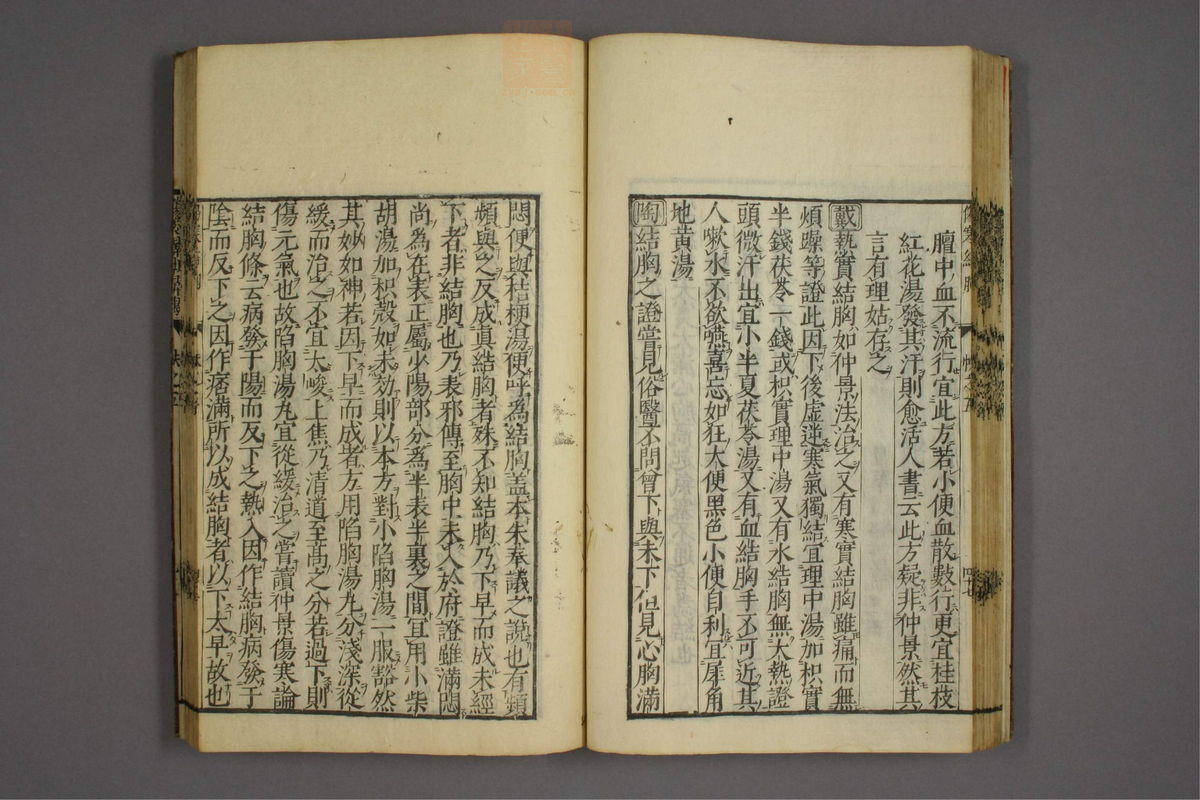 膻中血不流行宜此方若小便血散數行更宜桂枝
紅花湯發其汗則愈活人書云此方疑非仲景然其
言有理姑存之
戴熱實結胸如仲景法治之又有寒實結胸雖痛而無
煩躁等證此因下後虛逆寒氣獨結宜理中湯加枳實
半錢茯苓一錢或枳實理中湯又有水結胸無大熱證
頭微汗出宜小半夏茯苓湯又有血結胸手不可近其
人嗽水不欲嚥喜忘如狂大便黑色小便自利宜犀角
地黄湯
陶結胸之證嘗見俗醫不問曾下與未下但見心胸滿
悶便與桔梗湯便呼為結胸盖本朱奉議之說也有類
頻與之反成真結胸者殊不知結胸乃下早而成未經
下者非結胸也乃表邪傳至胸中未入於府證雖滿悶
尚為在表正屬少陽部分為半表半裏之間宜用小柴
胡湯加枳殻如未効則以本方對小陷胸湯一服豁然
其妙如神若因下早而成者方用陷胸湯丸分淺深從
緩而治之不宜太峻上焦乃清道至髙之分若過下則
傷元氣也故陷胸湯丸宜從緩治之嘗讀仲景傷寒論
結胸條云病發于陽而反下之熱入因作結胸病發于
陰而反下之因作痞滿所以成結胸者以下太早故也